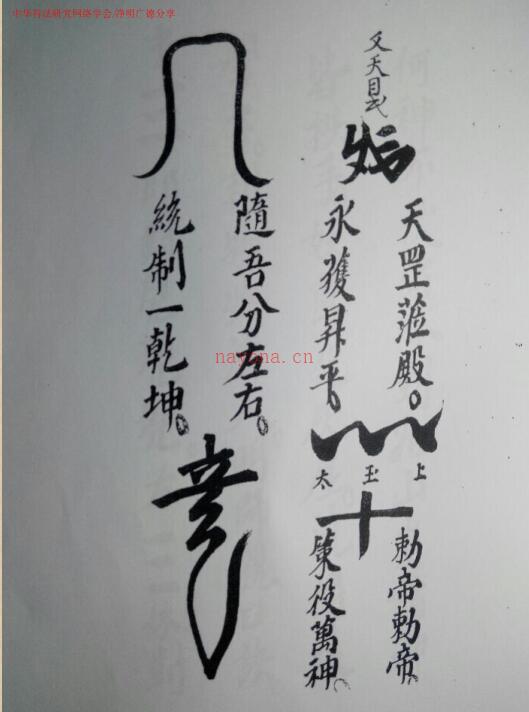 中华符法研究网络学会.净明广德分享
天罡蒞殿。
永獲昇平。
上
玉
太
勅帝勅帝。
策役萬神。
隨吾分左右。
統制一乾坤。
nayona.cn